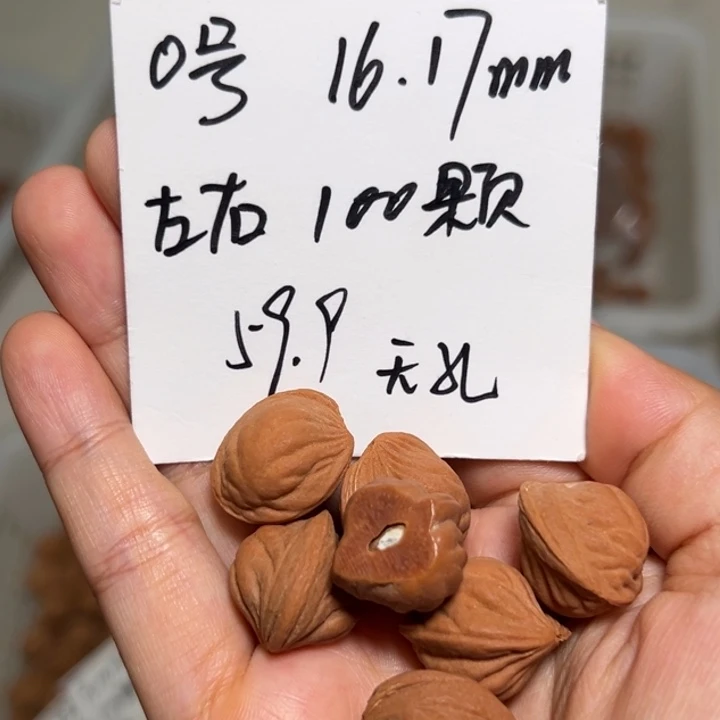 0号 16.17mm
左右 100颗
59.9 无孔